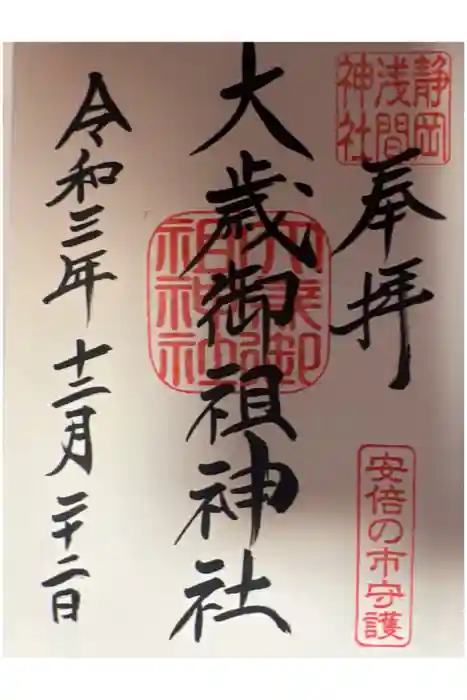 静岡
浅間
神社
奉拝
安倍の市守護
大歳御祖神社
大歳御
祖神社
令和三年十二月二十二日